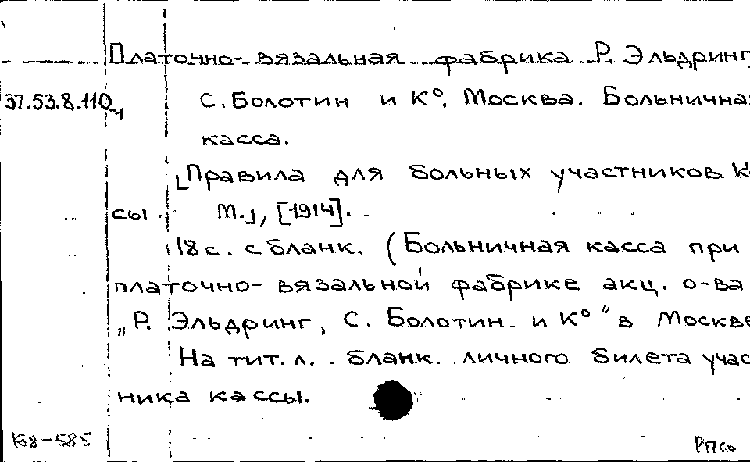 Платочно-вязальная фабрика Р. Эльдринг
37.53.8.110 С. Болотин и К°, Москва. Больнична
касса.
Правила для больных участников К
сы. М.], [1914].
18 с. с бланк. (Больничная касса при
платочно-вязальной фабрике акц. о-ва
„Р. Эльдринг, С. Болотин и К°" в Москве
На тит. л. бланк личного билета учас
ника кассы.
168-585